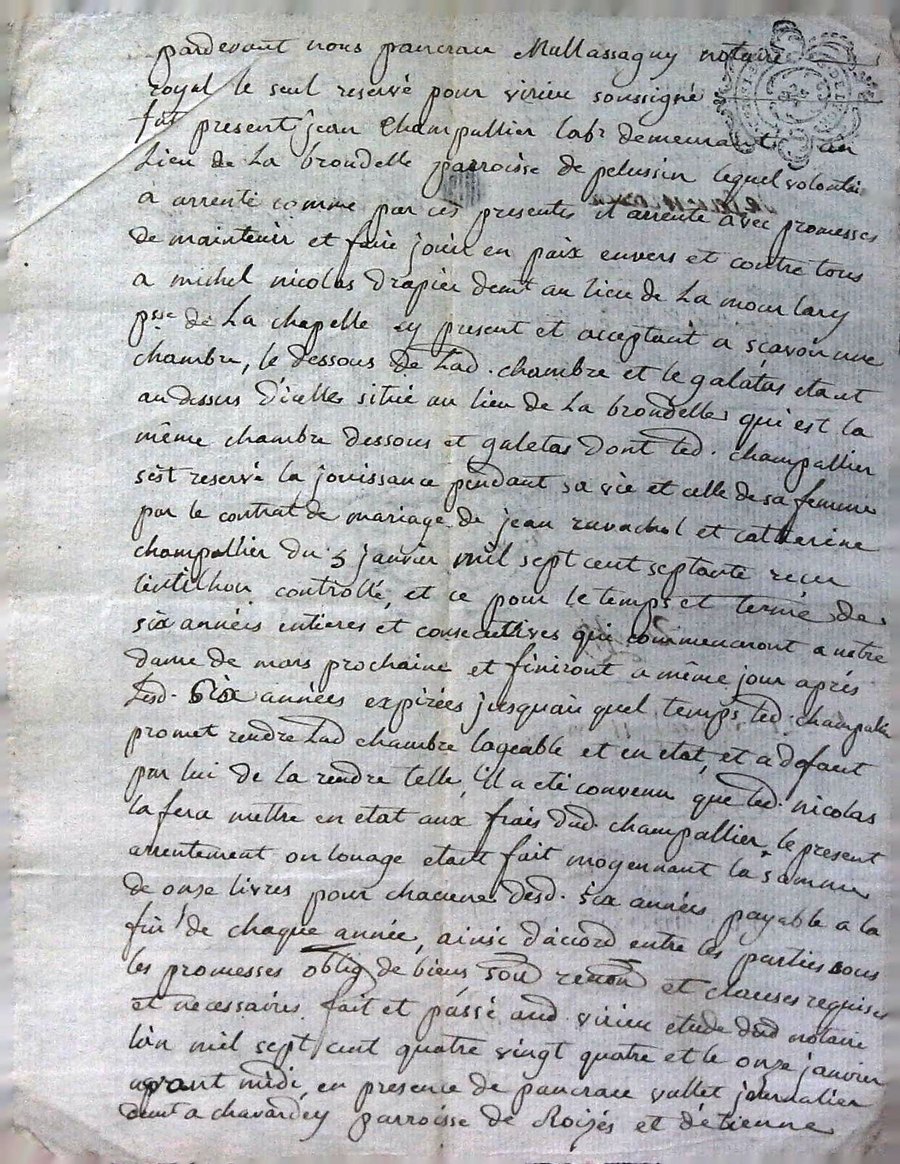 pardevant nous pancrace Mallassagny notaire
royal le seul reservé pour virieu soussigné
fut present jean Champallier labr demeurant au
Lieu de La brondelle parroisse de pelussin lequel volontai
à arrenté comme par ces presentes il arrente avec promesses
de maintenir et faire jouir en paix envers et contre tous
a michel nicolas drapier demt au lieu de La
psse de La chapelle cy present et acceptant a sçavoir une
chambre, le dessous de Lad. chambre et le galatas etant
au dessus d'icelle situé au lieu de La brondelle qui est la
même chambre dessous et galetas dont led. champallier
s'est reservé la jouissance pendant sa vie et celle de sa femme
par le contrat de mariage de jean ravachol et catherine
champallier du 5 janvier mil sept cent septante recu
controllé, et ce pour le temps et terme de
six années entieres et consecutives qui commenceront a notre
dame de mars prochaine et finiront a même jour aprés
Lesd. Six années expirées jusquau quel temps led. champallier
promet rendre Lad chambre logeable et en etat, et a defaut
par lui de la rendre telle, il a eté convenu que led. nicolas
la fera mettre en etat aux frais dud. champallier, le present
arrentement ou louage etant fait moyennant la somme
de onze livres pour chacune desd. six années payable a la
fin de chaque année, ainsi d'accord entre les parties sous
les promesses oblig de biens, soum renon et clauses requises
et necessaires. fait et passé aud. virieu etude dud notaire
l'an mil sept cent quatre vingt quatre et le onze janvier
avant midi, en presence de pancrace vallet journalier
demt a chavardey parroisse de Roizés et d'étienne